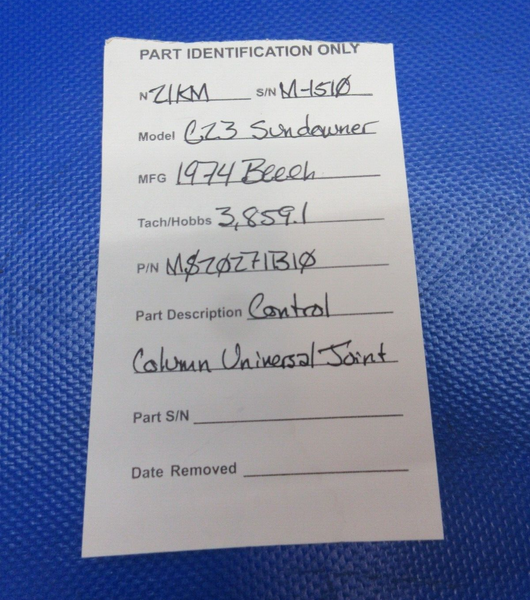 PART IDENTIFICATION ONLY
N 21KM S/N M-1510
Model C23 Sundowner
MFG 1974 Beech
Tach/Hobbs 3,859.1
P/N MS20271B10
Part Description Control
Column Universal Joint
Part S/N
Date Removed